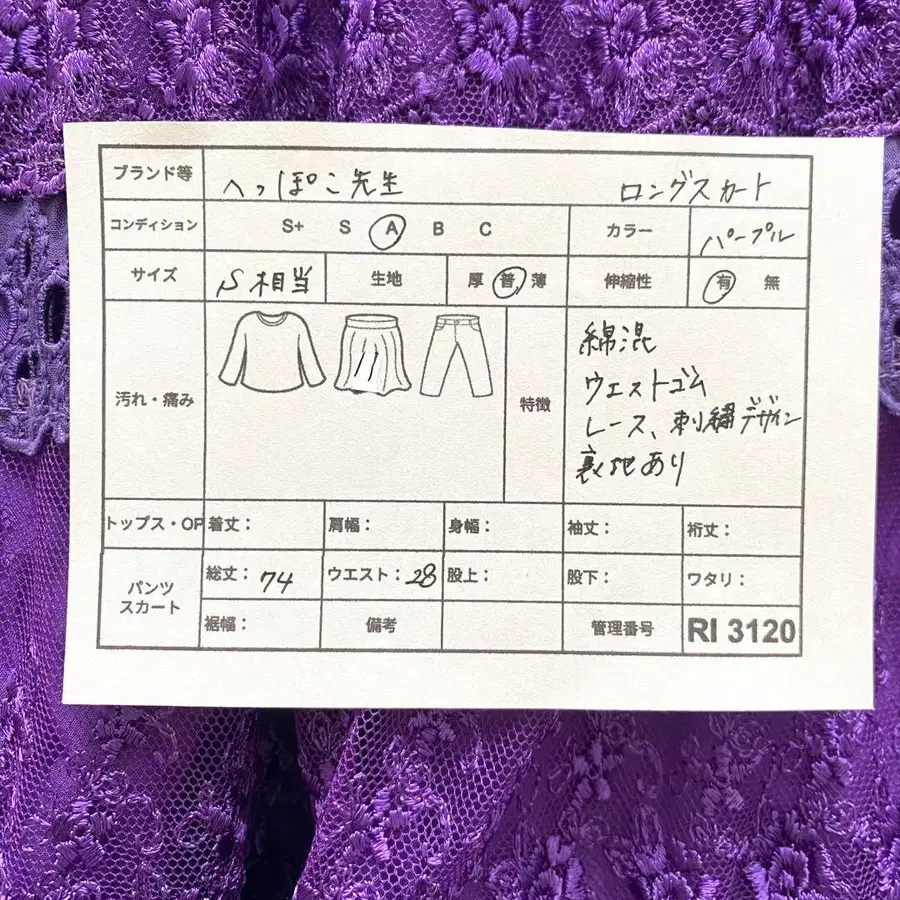 ブランド等 へっぽこ先生 ロングスカート
コンディション S+ S A B C カラー パープル
サイズ S相当 生地 厚 普 薄 伸縮性 有 無
汚れ・痛み 特徴 綿混
ウエストゴム
レース、刺繍デザイン
裏地あり
トップス・OP 着丈： 肩幅： 身幅： 袖丈： 裄丈：
パンツ
スカート
総丈：74 ウエスト：28 股上： 股下： ワタリ：
裾幅： 備考 管理番号 RI 3120